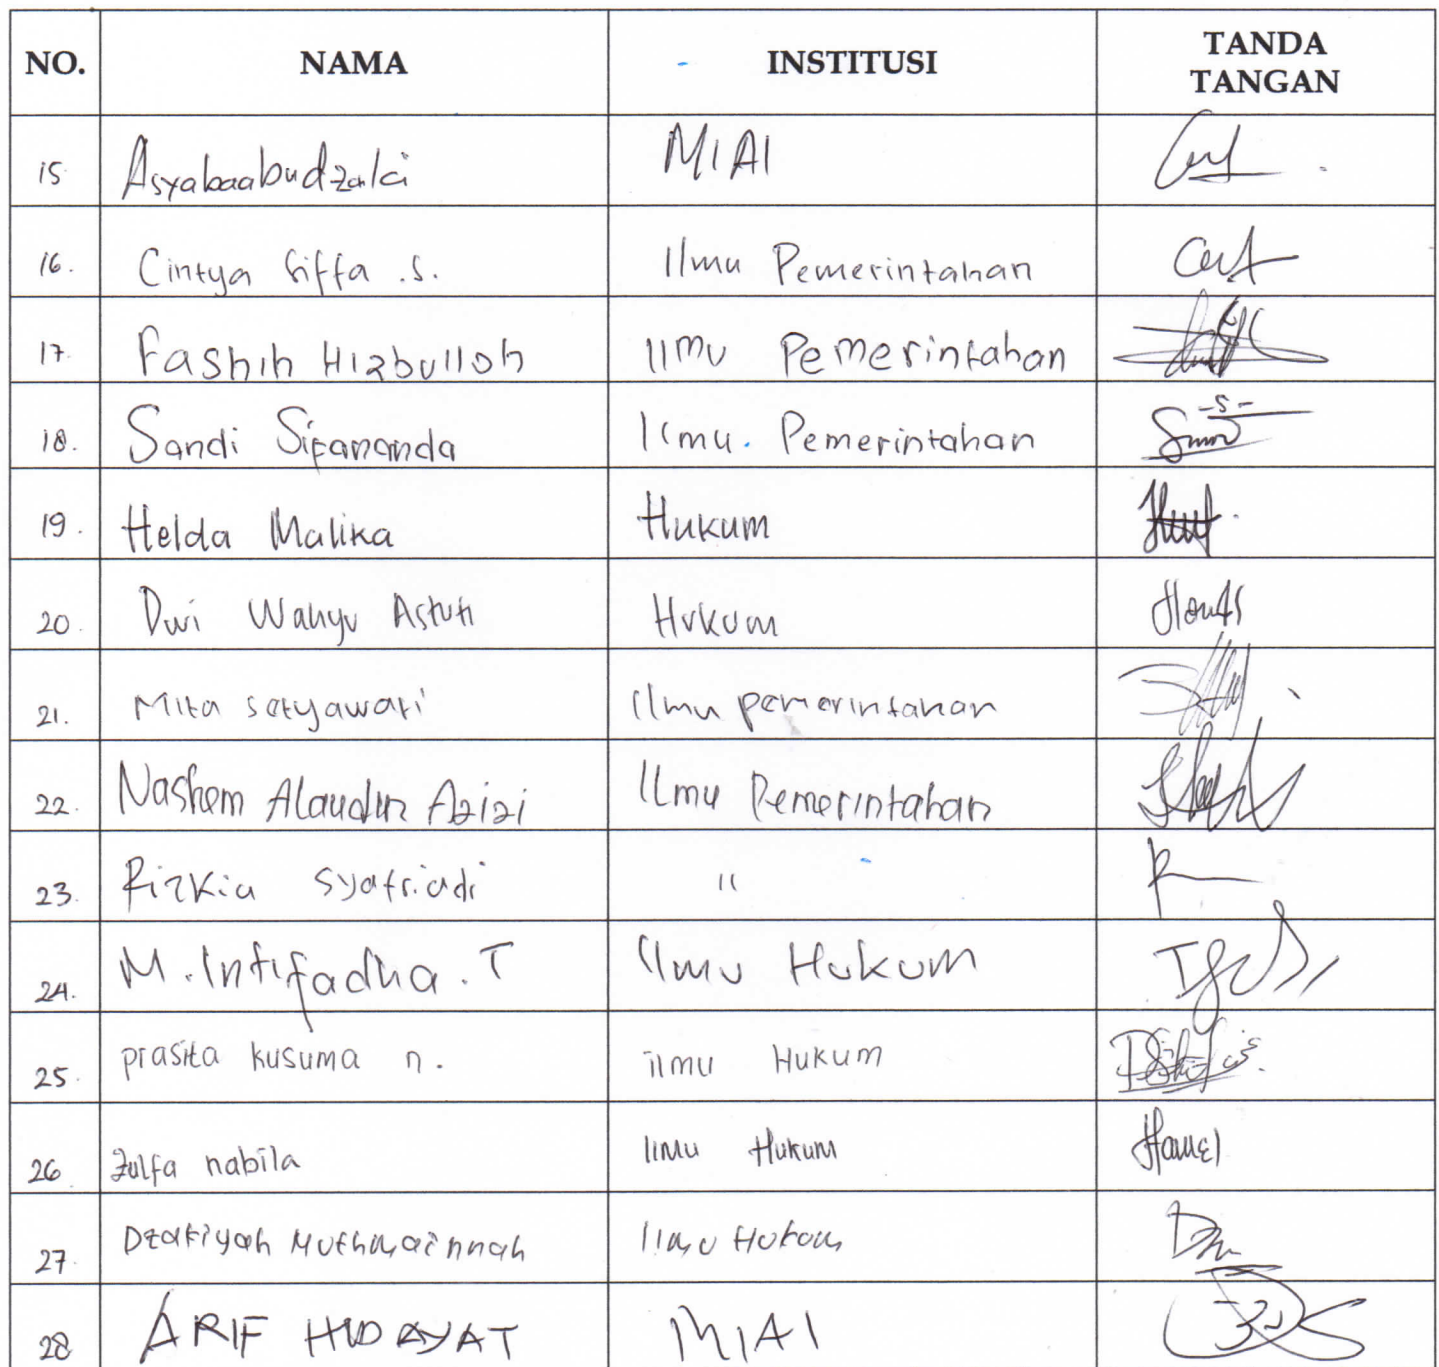 NO. NAMA INSTITUSI TANDA TANGAN
15 Asyabaabudzaki MIAI
16. Cintya Siffa .S. Ilmu Pemerintahan
17. Fashih Hizbulloh Ilmu Pemerintahan
18. Sandi Sifananda Ilmu. Pemerintahan
19. Helda Malika Hukum
20. Dwi Wahyu Astuti Hukum
21. Mita setyawati Ilmu pemerintahan
22. Nashem Alaudin Azizi Ilmu Pemerintahan
23. Rizkia Syafriadi "
24. M. Intifadha. T Ilmu Hukum
25. prasita kusuma n. ilmu Hukum
26. zulfa nabila Ilmu Hukum
27. Dzakiyah Muthmainnah Ilmu Hukum
28 ARIF HIDAYAT MIAI